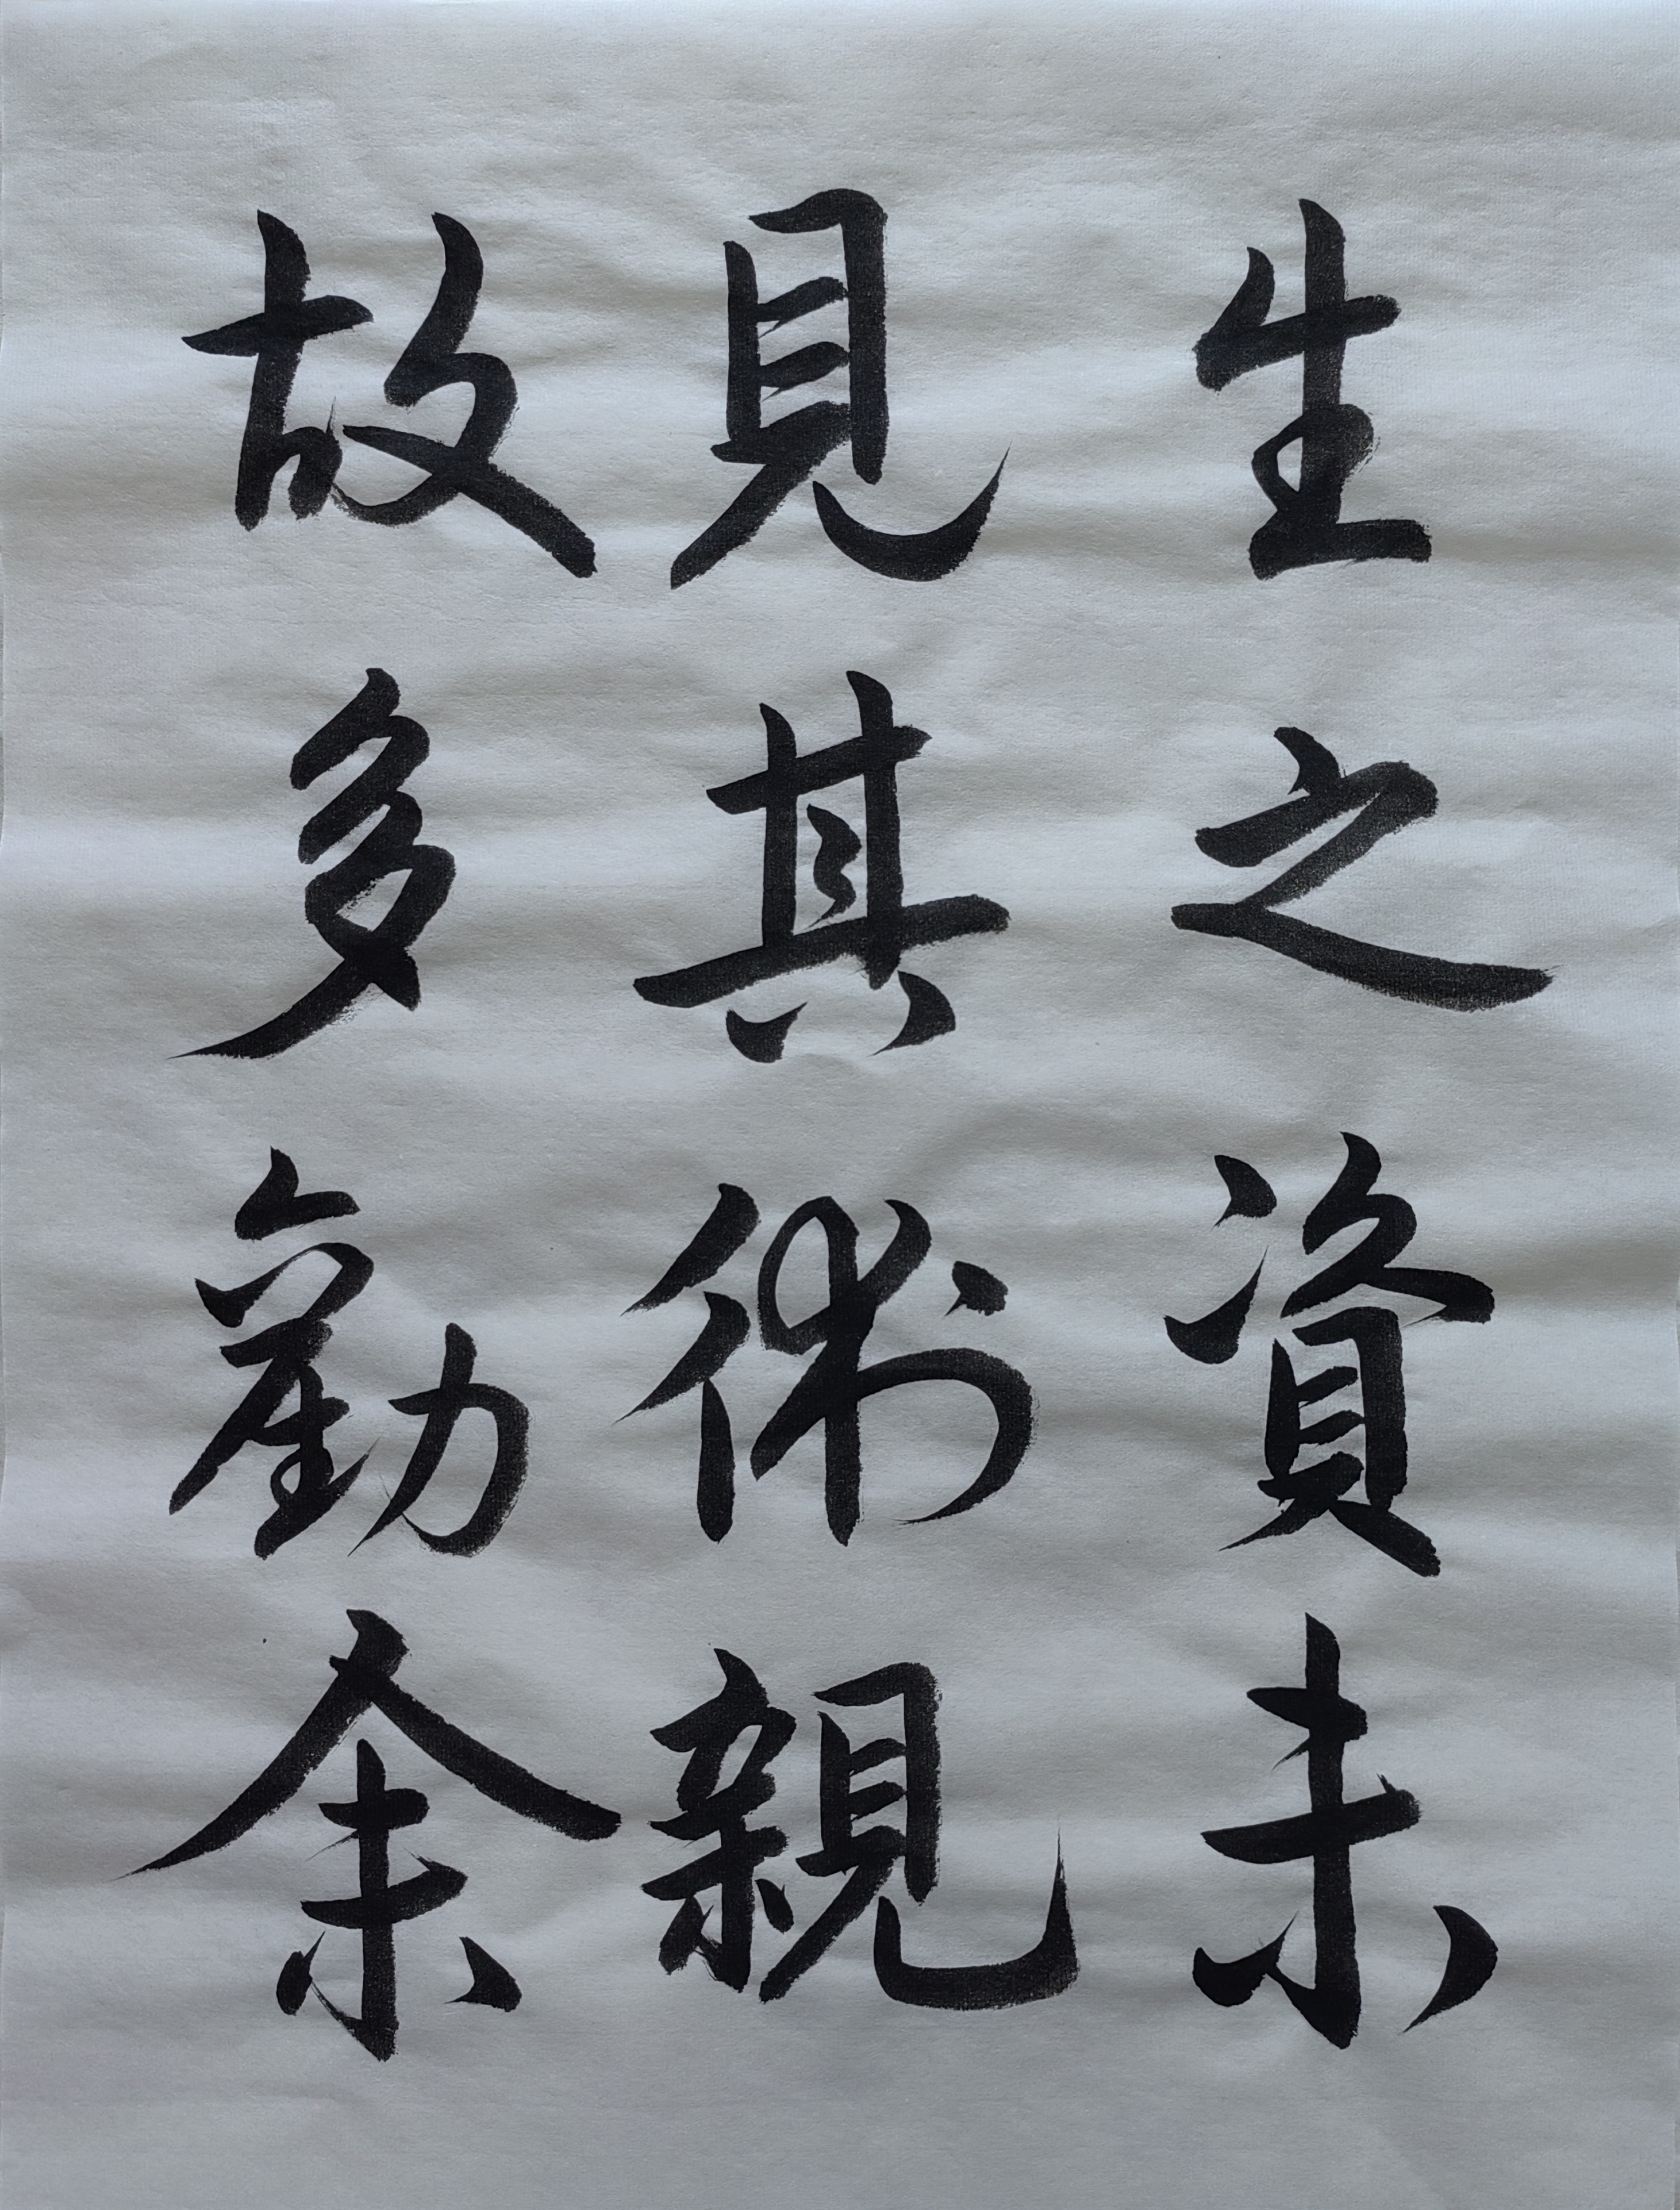 生之資未
見其術親
故多勸余